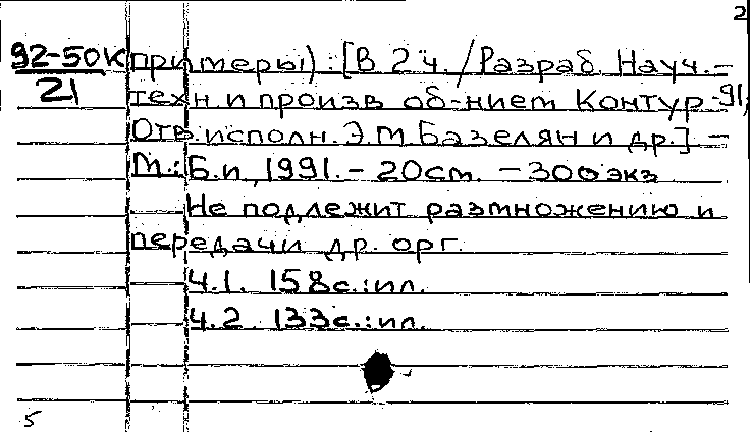 2
92-50К примеры) : [В 2 ч. / Разраб. Науч.-
21 техн. и произв об-нием Контур-91;
Отв. исполн. Э.М. Базелян и др.] -
М.: Б.и, 1991. - 20 см. - 300 экз
Не подлежит размножению и
передачи др. орг.
Ч.1. 158с.: ил.
Ч.2. 133с.: ил.
5